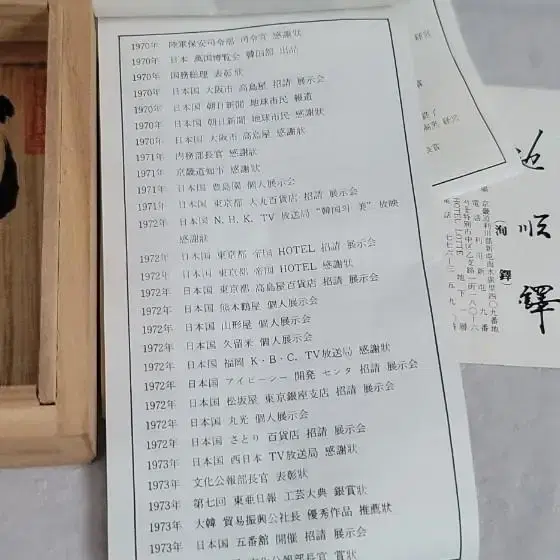 1970年 陸軍保安司令部 司令官 感謝狀
1970年 日本 萬国博覧会 韓国館 出品
1970年 国務総理 表彰狀
1970年 日本国 大阪市 高島屋 招請 展示会
1970年 日本国 朝日新聞 地球市民 報道
1970年 日本国 朝日新聞 地球市民 感謝狀
1970年 日本国 大阪市 高島屋 感謝狀
1971年 内務部長官 感謝狀
1971年 京畿道知事 感謝狀
1971年 日本国 豊島園 個人展示会
1971年 日本国 東京都 大丸百貨店 招請 展示会
1972年 日本国 N.H.K.TV 放送局 “韓国의 美” 放映
感謝狀
1972年 日本国 東京都 帝国 HOTEL 招請 展示会
1972年 日本国 東京都 帝国 HOTEL 感謝狀
1972年 日本国 東京都 高島屋百貨店 招請 展示会
1972年 日本国 熊本鶴屋 個人展示会
1972年 日本国 山形屋 個人展示会
1972年 日本国 久留米 個人展示会
1972年 日本国 福岡 K・B・C.TV放送局 感謝狀
1972年 日本国 アイビーシー 開発 センタ 招請 展示会
1972年 日本国 松坂屋 東京銀座支店 招請 展示会
1972年 日本国 丸光 個人展示会
1972年 日本国 さとり 百貨店 招請 展示会
1973年 日本国 西日本 TV放送局 感謝狀
1973年 文化公報部長官 表彰狀
1973年 第七回 東亜日報 工芸大典 銀賞狀
1973年 大韓 貿易振興公社長 優秀作品 推薦狀
1973年 日本国 五番舘 開催 招請 展示会
文化公報部長官 賞狀
順鐸
(海鐸)
HOTEL LOTTE 地下一層